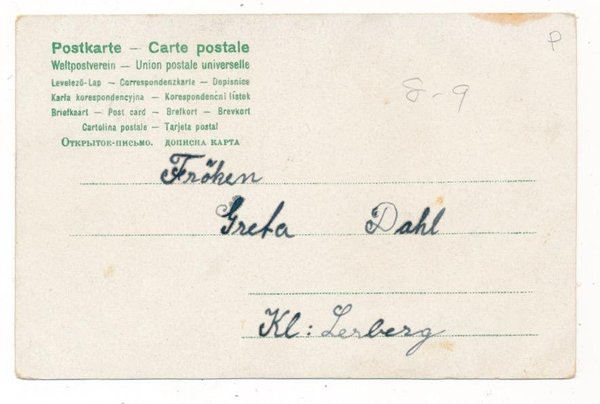 Postkarte – Carte postale
Weltpostverein – Union postale universelle
Levelező-Lap – Correspondenzkarte – Dopisnice
Karta korespondencyjna – Korespondenční lístek
Briefkaart – Post card – Brefkort – Brevkort
Cartolina postale – Tarjeta postal
Открыток-письмо. дописна карта
P
8-9
Fröken
Greta Dahl
Kl: Lerberg